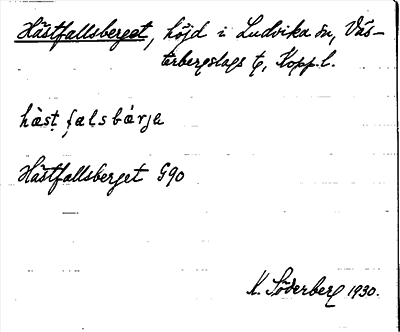 Hästfallsberget, höjd i Ludvika sn, Väs-
terbergslags tg, Kopp. l.
hä̀sṭ fạlsbárja
Hästfallsberget G90
K. Söderberg 1930.